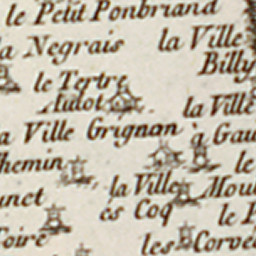 le Petit Ponbriand
la Negrais la Ville
Billy
le Tertre
Aulot la Ville
a Ville Grignan à Gau
Chemin le
la Ville Moul
unet és Coq le P
Foire les Corvé